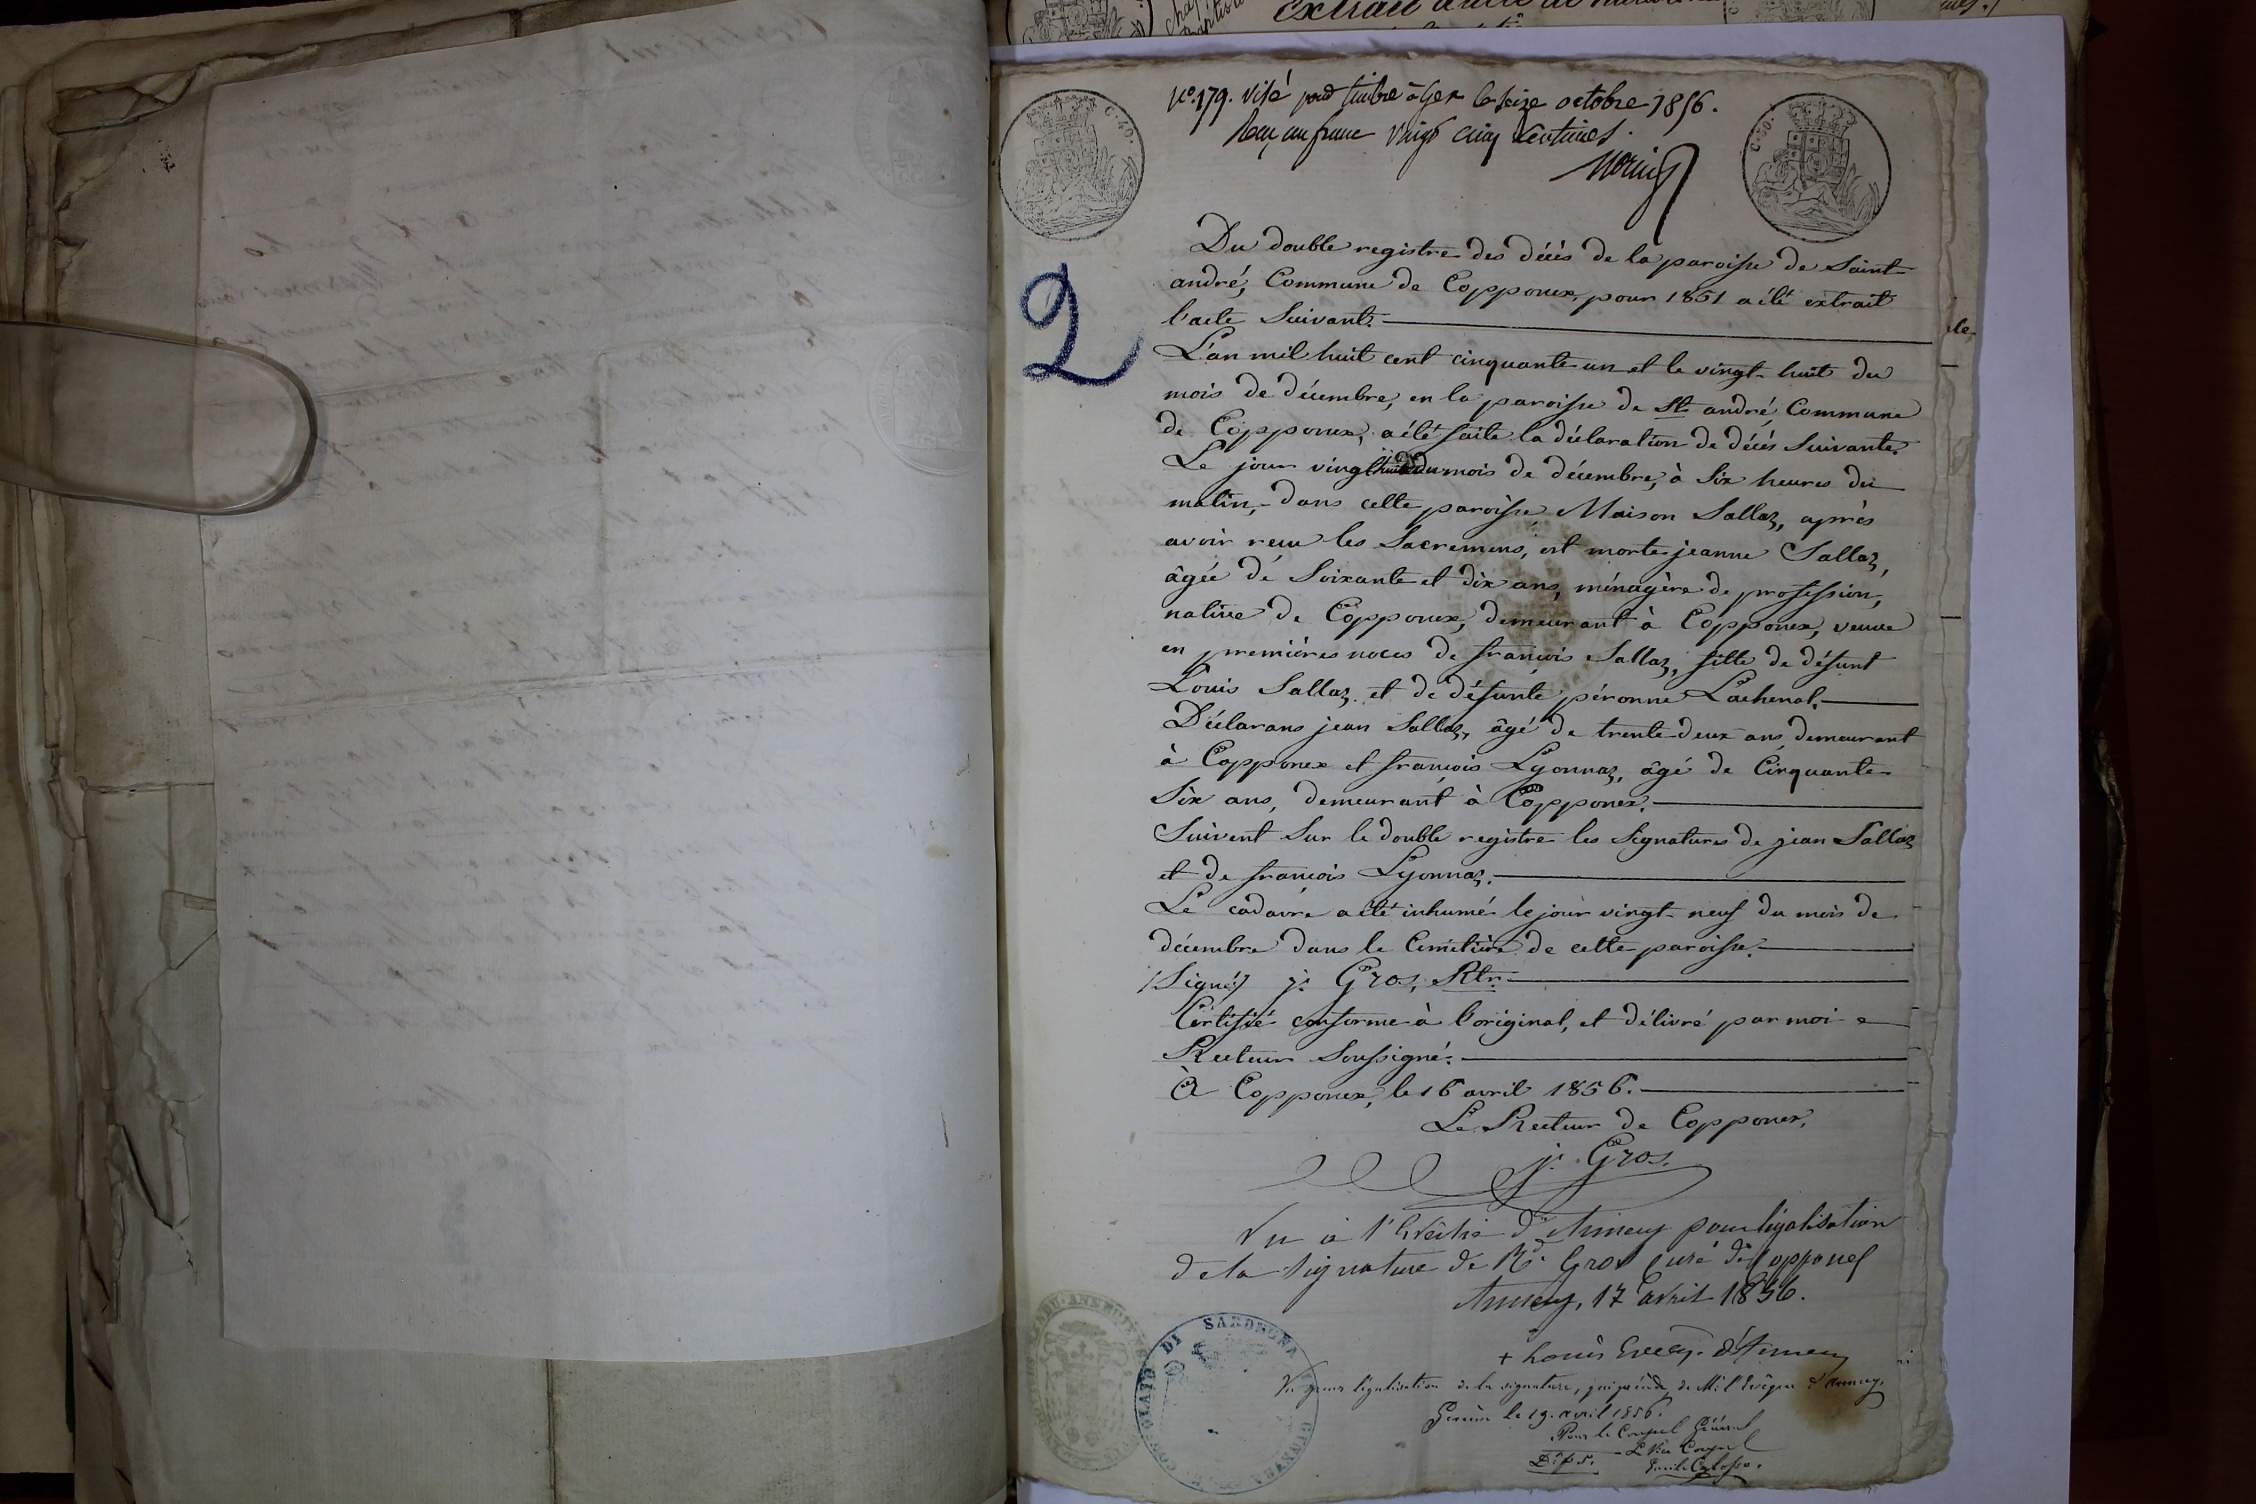 extrait d'acte de
No. 179. visé pour timbre à Gex le seize octobre 1856.
Reçu un franc vingt cinq centimes.
C. 40.
C. 50.
2
Du double registre des décès de la paroisse de Saint
andré, Commune de Copponex, pour 1851 a été extrait
l'acte Suivant.
L'an mil huit cent cinquante un et le vingt-huit du
mois de décembre, en la paroisse de St. andré, Commune
de Copponex, a été faite la déclaration de décès Suivante.
Le jour vingt huit du mois de décembre, à Six heures du
matin, dans cette paroisse Maison Sallaz, après
avoir reçu les Sacremens, est morte jeanne Sallaz,
âgée de Soixante et dix ans, ménagère de profession,
native de Copponex, demeurant à Copponex, veuve
en premières noces de françois Sallaz, fille de défunt
Louis Sallaz et de défunte péronne Lachenal.
Déclarans jean Sallaz, âgé de trente deux ans, demeurant
à Copponex et françois Lyonnaz, âgé de Cinquante
Six ans, demeurant à Copponex.
Suivent Sur le double registre les Signatures de jean Sallaz
et de françois Lyonnaz.
Le cadavre a été inhumé le jour vingt-neuf du mois de
décembre dans le Cimetière de cette paroisse.
/Signé/ j. Gros, Rtr.
Certifié conforme à l'original, et délivré par moi
Recteur Soussigné.
A Copponex, le 16 avril 1856.
Le Recteur de Copponex,
j. Gros.
Vu à l'Evêché d'Annecy pour légalisation
de la signature de Rd. Gros curé de Copponex
Annecy, 17 avril 1856.
+ Louis Evêq. d'Annecy
Vu pour légalisation de la signature, qui précède, de M. l'Evêque d'Annecy.
Genève le 19. avril 1856.
Pour le Consul Général
Le Vice Consul
CONSOLATO DI SARDEGNA GINEVRA